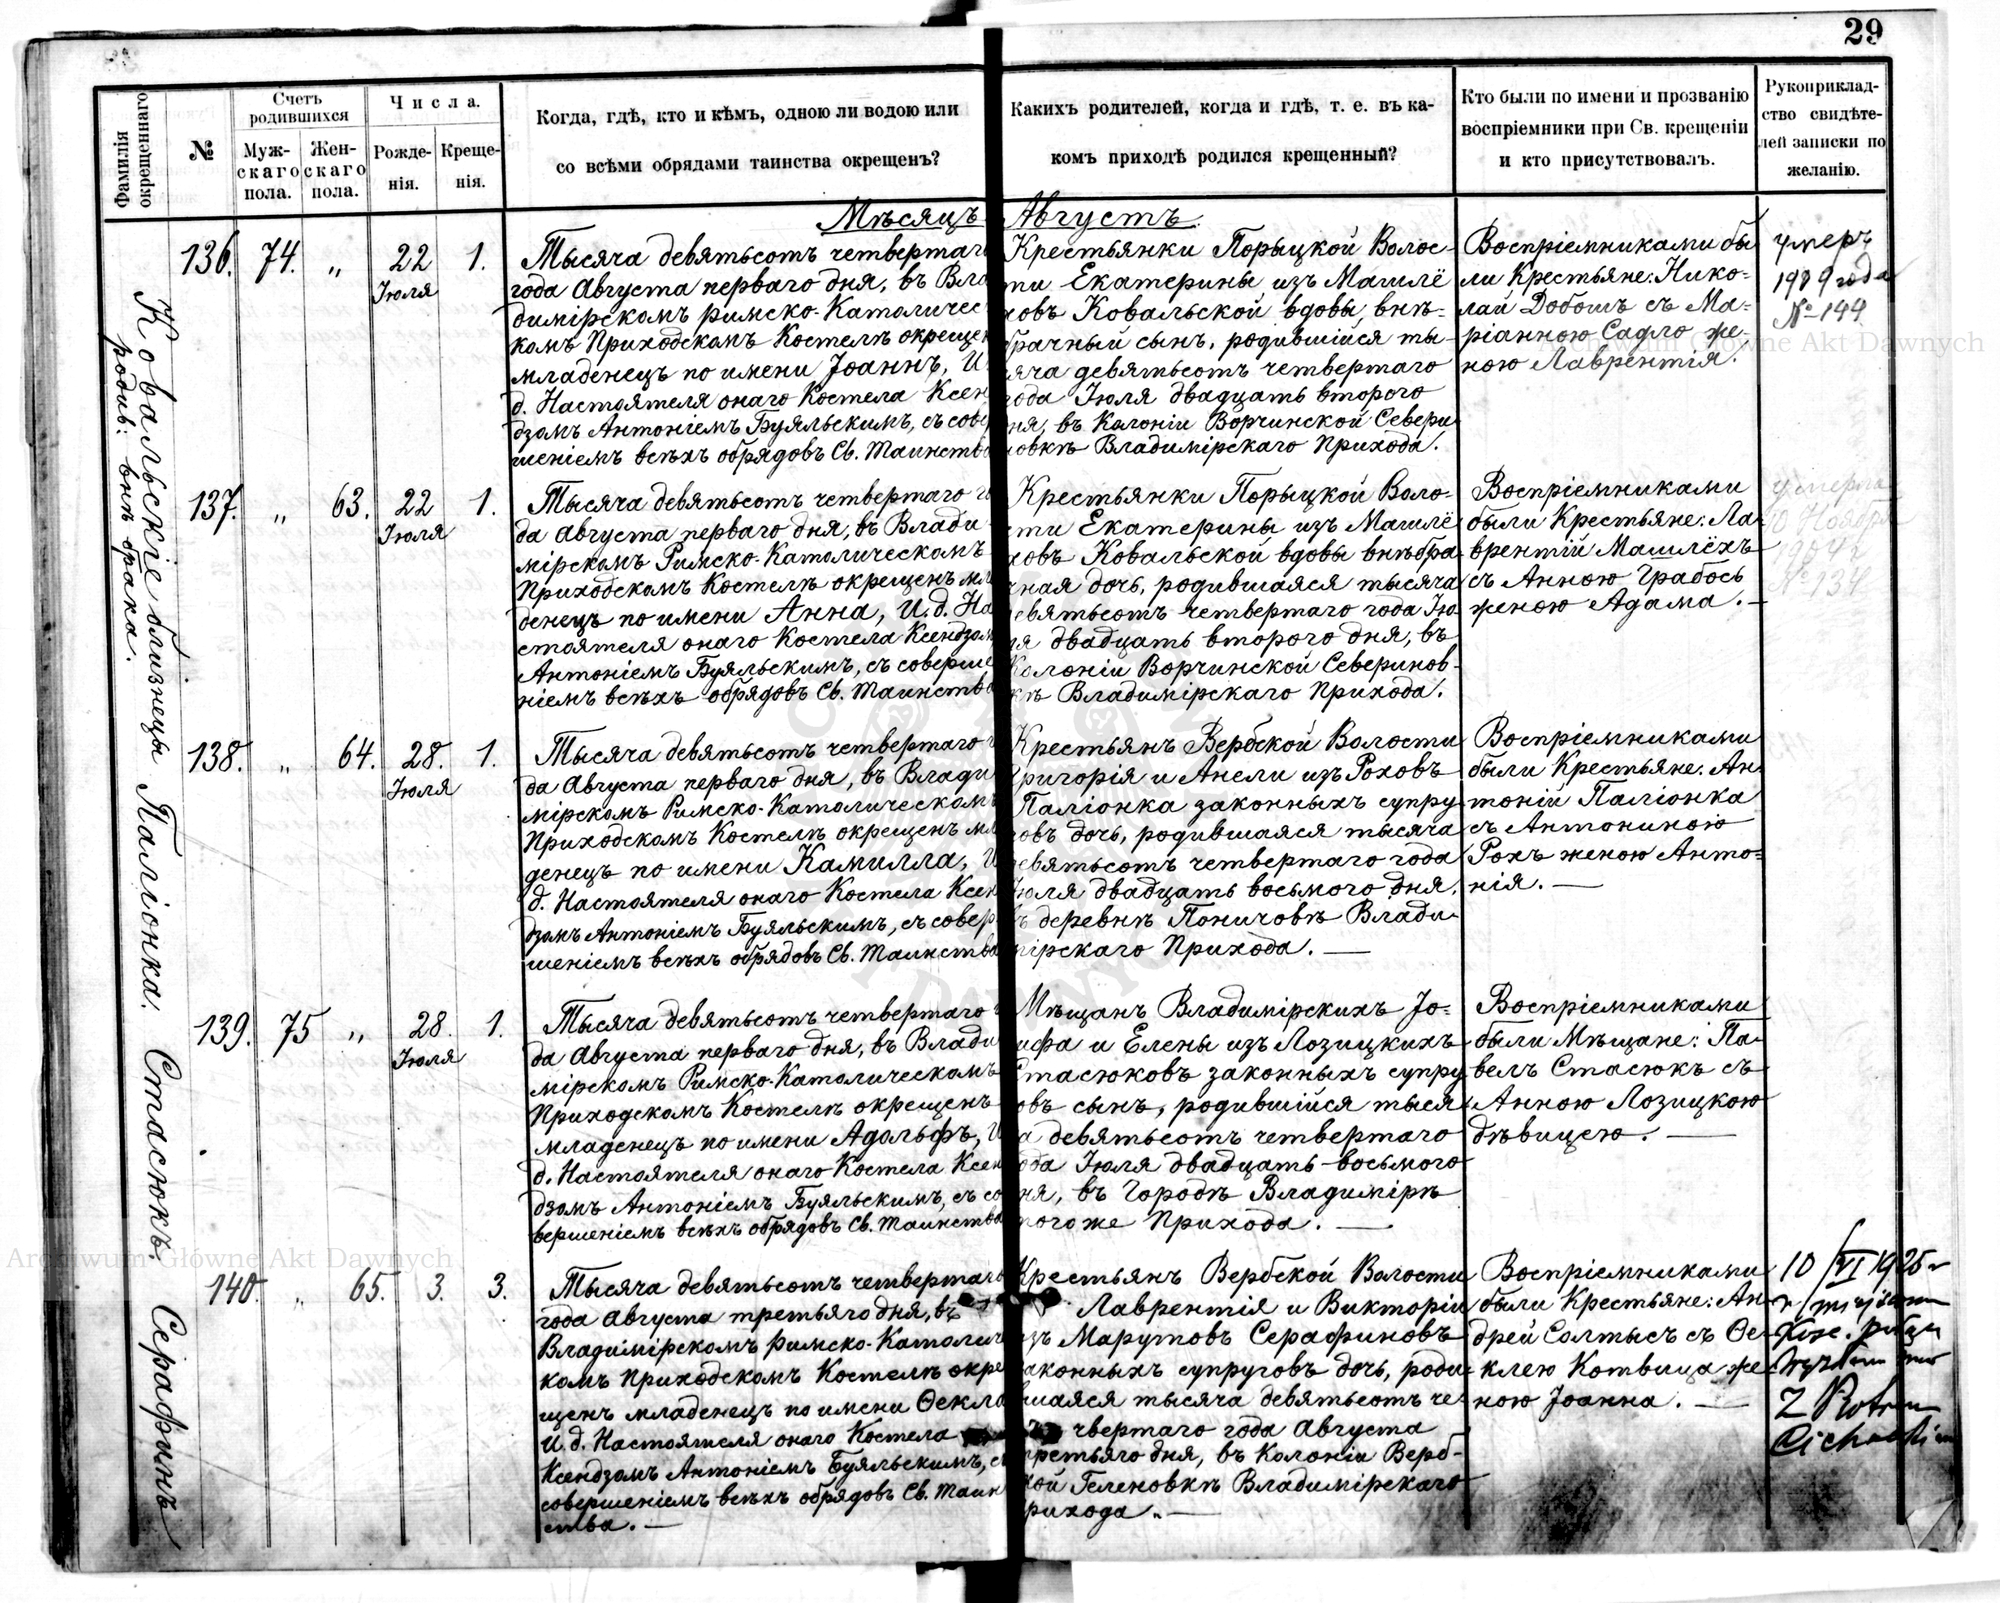 29
Фамилія окрещеннаго.
№
Счетъ родившихся
Муж-
скаго
пола.
Жен-
скаго
пола.
Числа.
Рожде-
нія.
Креще-
нія.
Когда, гдѣ, кто и кѣмъ, одною ли водою или
со всѣми обрядами таинства окрещенъ?
Какихъ родителей, когда и гдѣ, т. е. въ ка-
комъ приходѣ родился крещенный?
Кто были по имени и прозванію
воспріемники при Св. крещеніи
и кто присутствовалъ.
Рукоприклад-
ство свидѣте-
лей записки по
желанію.
Мѣсяцъ Августъ
Ковальскіе близнецы
родив: внѣ брака.
136. 74. „ 22 Іюля 1.
Тысяча девятьсотъ четвертаг
года Августа перваго дня, въ Вла
димірскомъ римско-Католичес
комъ Приходскомъ Костелѣ окрещен
младенецъ по имени Іоаннъ, И
д. Настоятеля онаго Костела Ксен
дзомъ Антоніемъ Буяльскимъ, съ сове
шеніемъ всѣхъ обрядовъ Св. Таинства
Крестьянки Порыцкой Волос-
ти Екатерины изъ Машлё
ховъ Ковальской вдовы, внѣ-
брачный сынъ, родившійся ты-
сяча девятьсотъ четвертаго
года Іюля двадцать второго
дня, въ Колоніи Ворчинской Севери
новкѣ Владимірскаго Прихода.
Воспріемниками бы
ли Крестьяне: Нико-
лай Добошъ съ Ма-
ріанною Садло же-
ною Лаврентія.
умеръ
1909 года
№ 144
137. „ 63. 22 Іюля 1.
Тысяча девятьсотъ четвертаго г
да Августа перваго дня, въ Влади
мірскомъ Римско-Католическомъ
Приходскомъ Костелѣ окрещенъ мла
денецъ по имени Анна, И. д. На
стоятеля онаго Костела Ксендзом
Антоніемъ Буяльскимъ, съ соверше
ніемъ всѣхъ обрядовъ Св. Таинства
Крестьянки Порыцкой Воло-
сти Екатерины изъ Машлё
ховъ Ковальской вдовы внѣбра
чная дочь, родившаяся тысяча
девятьсотъ четвертаго года Ію
ля двадцать второго дня, въ
Колоніи Ворчинской Северинов-
кѣ Владимірскаго Прихода.
Воспріемниками
были Крестьяне: Ла-
врентій Машлёхъ
съ Анною Грабось
женою Адама. —
умерла
10 Ноября
1904 г
№ 134
Паліонка.
138. „ 64. 28. Іюля 1.
Тысяча девятьсотъ четвертаго г
да Августа перваго дня, въ Влади
мірскомъ Римско-Католическомъ
Приходскомъ Костелѣ окрещенъ мла
денецъ по имени Камилла, И
д. Настоятеля онаго Костела Ксен
дзомъ Антоніемъ Буяльскимъ, съ совер
шеніемъ всѣхъ обрядовъ Св. Таинства
Крестьянъ Вербской Волости
Григорія и Анели изъ Роховъ
Паліонка законныхъ супру
говъ дочь, родившаяся тысяча
девятьсотъ четвертаго года
Іюля двадцать восьмого дня,
въ деревнѣ Поничовѣ Влади-
мірскаго Прихода. —
Воспріемниками
были Крестьяне: Ан-
тоній Паліонка
съ Антониною
Рохъ женою Анто-
нія. —
Стасюкъ.
139. 75 „ 28. Іюля 1.
Тысяча девятьсотъ четвертаго г
да Августа перваго дня, въ Влади
мірскомъ Римско-Католическомъ
Приходскомъ Костелѣ окрещенъ
младенецъ по имени Адольфъ, И
д. Настоятеля онаго Костела Ксен
дзомъ Антоніемъ Буяльскимъ, съ со
вершеніемъ всѣхъ обрядовъ Св. Таинства
Мѣщанъ Владимірскихъ Іо-
сифа и Елены изъ Лозицкихъ
Стасюковъ законныхъ супру
говъ сынъ, родившійся тыся
ча девятьсотъ четвертаго
года Іюля двадцать восьмого
дня, въ Городѣ Владимірѣ
тогоже Прихода. —
Воспріемниками
были Мѣщане: Па-
велъ Стасюкъ съ
Анною Лозицкою
дѣвицею. —
Серафинъ
140. „ 65. 3. 3.
Тысяча девятьсотъ четвертаго
года Августа третьяго дня, въ
Владимірскомъ Римско-Католич
комъ Приходскомъ Костелѣ окре
щенъ младенецъ по имени Ѳекла
И. д. Настоятеля онаго Костела
Ксендзомъ Антоніемъ Буяльскимъ, съ
совершеніемъ всѣхъ обрядовъ Св. Таин
ства. —
Крестьянъ Вербской Волости
Лаврентія и Викторіи
изъ Марутовъ Серафиновъ
законныхъ супруговъ дочь, роди-
вшаяся тысяча девятьсотъ че-
твертаго года Августа
третьяго дня, въ Колоніи Верб-
ской Геленовкѣ Владимірскаго
Прихода. —
Воспріемниками
были Крестьяне: Ан-
дрей Солтысъ съ Ѳе-
клею Котвица же-
ною Іоанна. —
10/VI 1925 r
Archiwum Główne Akt Dawnych
Archiwum Główne Akt Dawnych